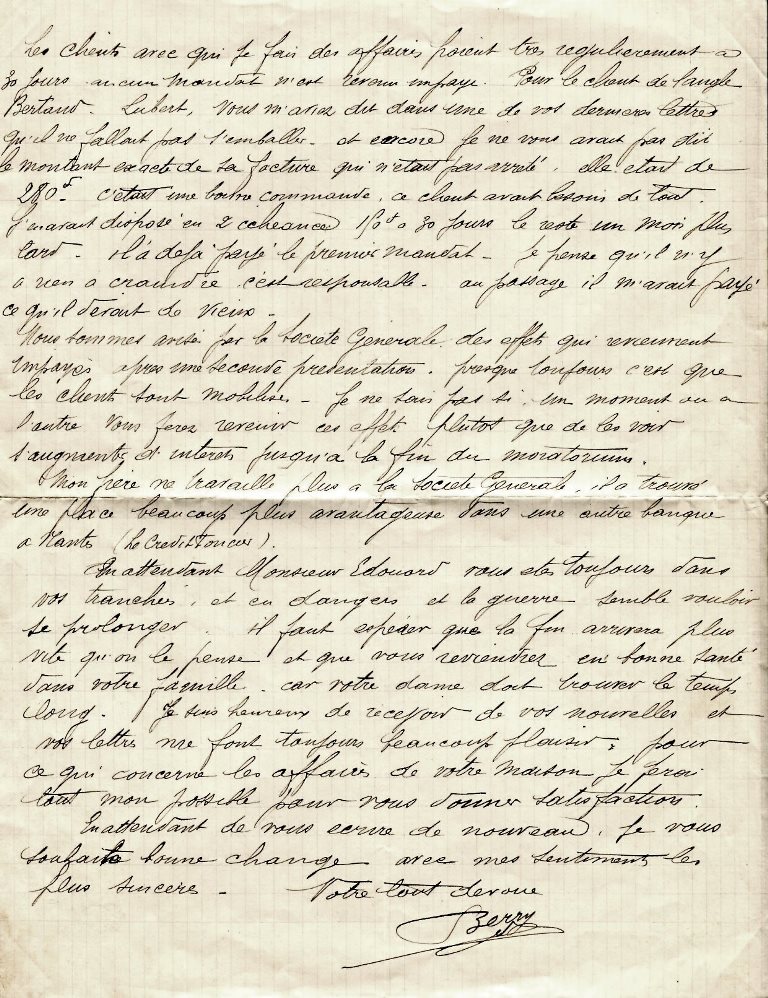 Les clients avec qui je fais des affaires paient tres regulierement a
30 jours aucun mandat n'est revenu impaye. Pour le client de l'angle
Bertaud. Lubert, vous m'aviez dit dans une de vos dernieres lettres
qu'il ne fallait pas s'emballer. et encore je ne vous avait pas dit
le montant exacte de sa facture qui n'était pas arreté. elle etait de
280f. c'était une bonne commande, ce client avait besoin de tout.
J'en avait disposé en 2 echeances 150f a 30 jours le reste un mois plus
tard. il a deja payé le premier mandat. Je pense qu'il n'y
a rien a craindre c'est responsable. au passage il m'avait payé
ce qu'il devait de vieux.
Nous sommes avisé par la Societe Generale des effets qui reviennent
impayés apres une seconde presentation. presque toujours c'est que
les clients sont mobilises. Je ne sais pas si un moment ou a
l'autre vous ferez revenir ces effets plutot que de les voir
s'augmenter d'interets jusqu'a la fin du moratorium.
Mon frère ne travaille plus a la Societe Generale, il a trouvé
une place beaucoup plus avantageuse dans une autre banque
a Nantes (le Credit foncier).
En attendant Monsieur Edouard vous etes toujours dans
vos tranchés, et en dangers et la guerre semble vouloir
se prolonger. il faut espérer que la fin arrivera plus
vite qu'on le pense et que vous reviendrez en bonne santé
dans votre famille. car votre dame doit trouver le temps
long. Je suis heureux de recevoir de vos nouvelles et
vos lettres me font toujours beaucoup plaisir, pour
ce qui concerne les affaires de votre Maison je ferai
tout mon possible pour vous donner satisfaction.
En attendant de vous ecrire de nouveau, je vous
souhaite bonne change avec mes sentiments les
plus sinceres. Votre tout devoue
Berry